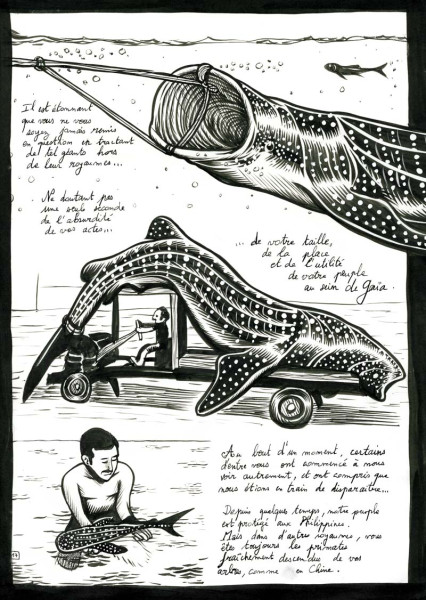 Il est étonnant
que vous ne vous
soyez jamais remis
en question en tractant
de tels géants hors
de leur royaume...
Ne doutant pas
une seule seconde
de l'absurdité
de vos actes...
... de votre taille,
de la place
et de l'utilité
de votre peuple
au sein de Gaïa.
Au bout d'un moment, certains
d'entre vous ont commencé à nous
voir autrement, et ont compris que
nous étions en train de disparaître...
Depuis quelques temps, notre peuple
est protégé aux Philippines.
Mais dans d'autres royaumes, vous
êtes toujours les primates
fraîchement descendus de vos
arbres, comme en Chine.